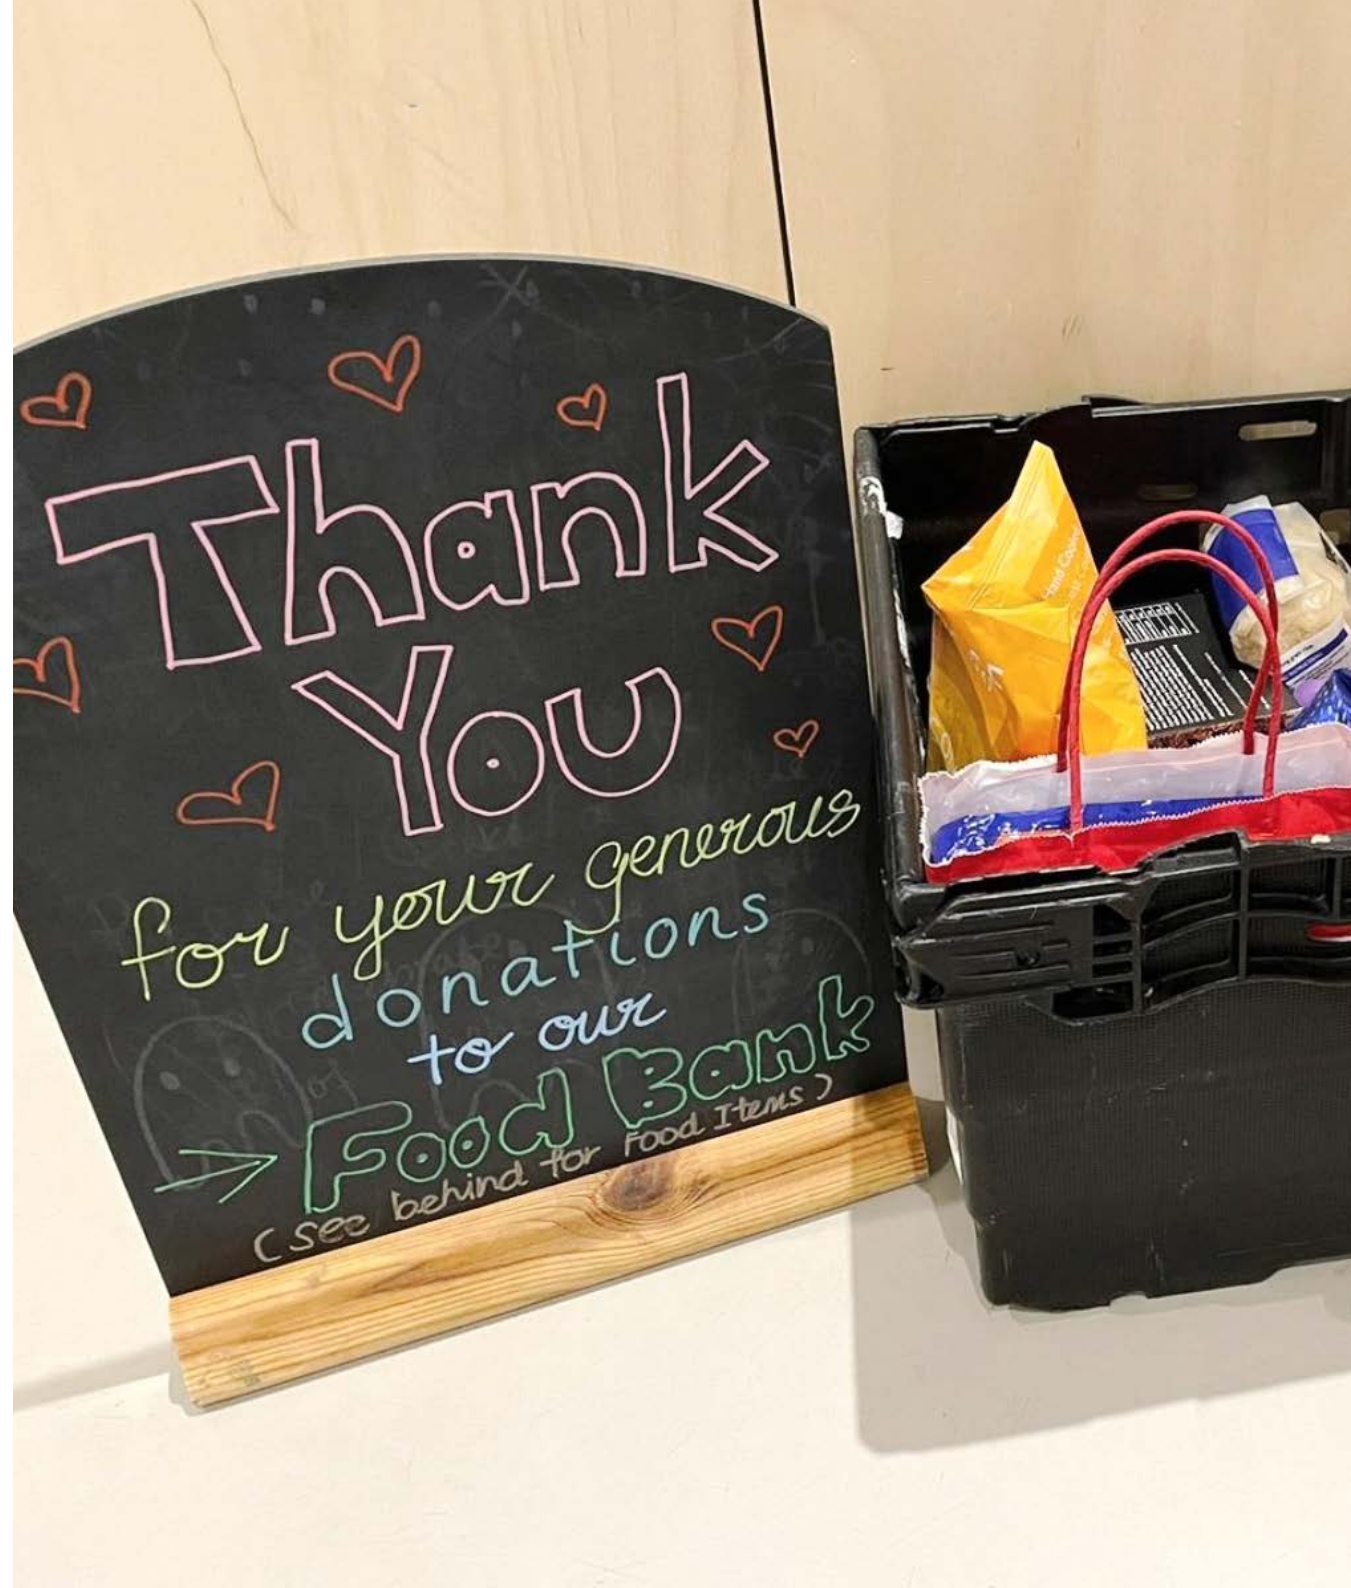 Thank
You
for your generous
donations
to our
Food Bank
(see behind for Food Items)
Hand Cooked